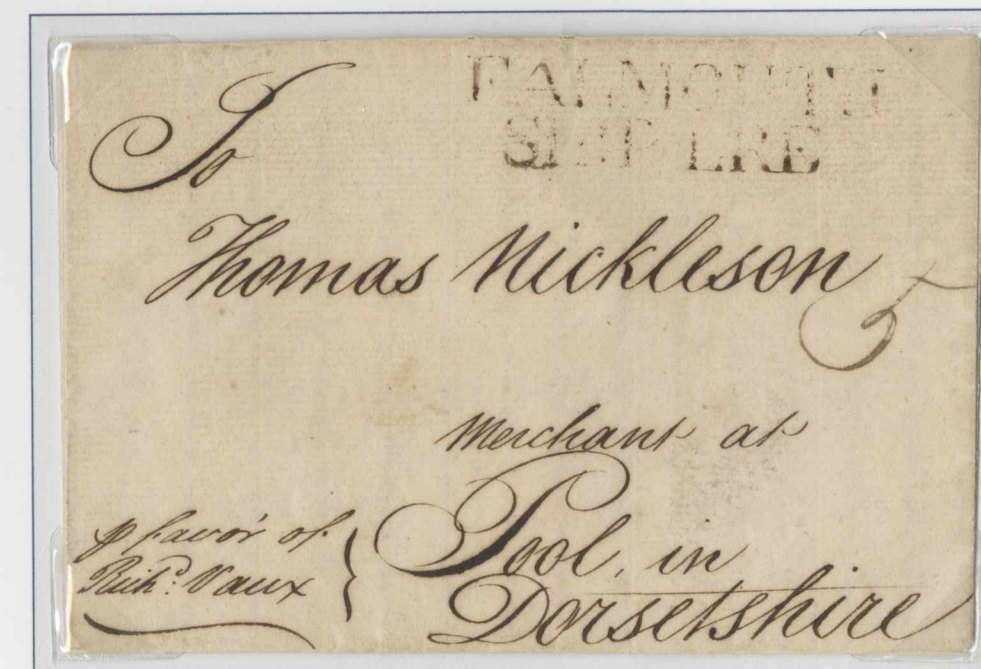 FALMOUTH
SHIP LRE
To
Thomas Nickleson
5
Merchant at
Pool, in
Dorsetshire
⅌ favor of
Richd. Vaux